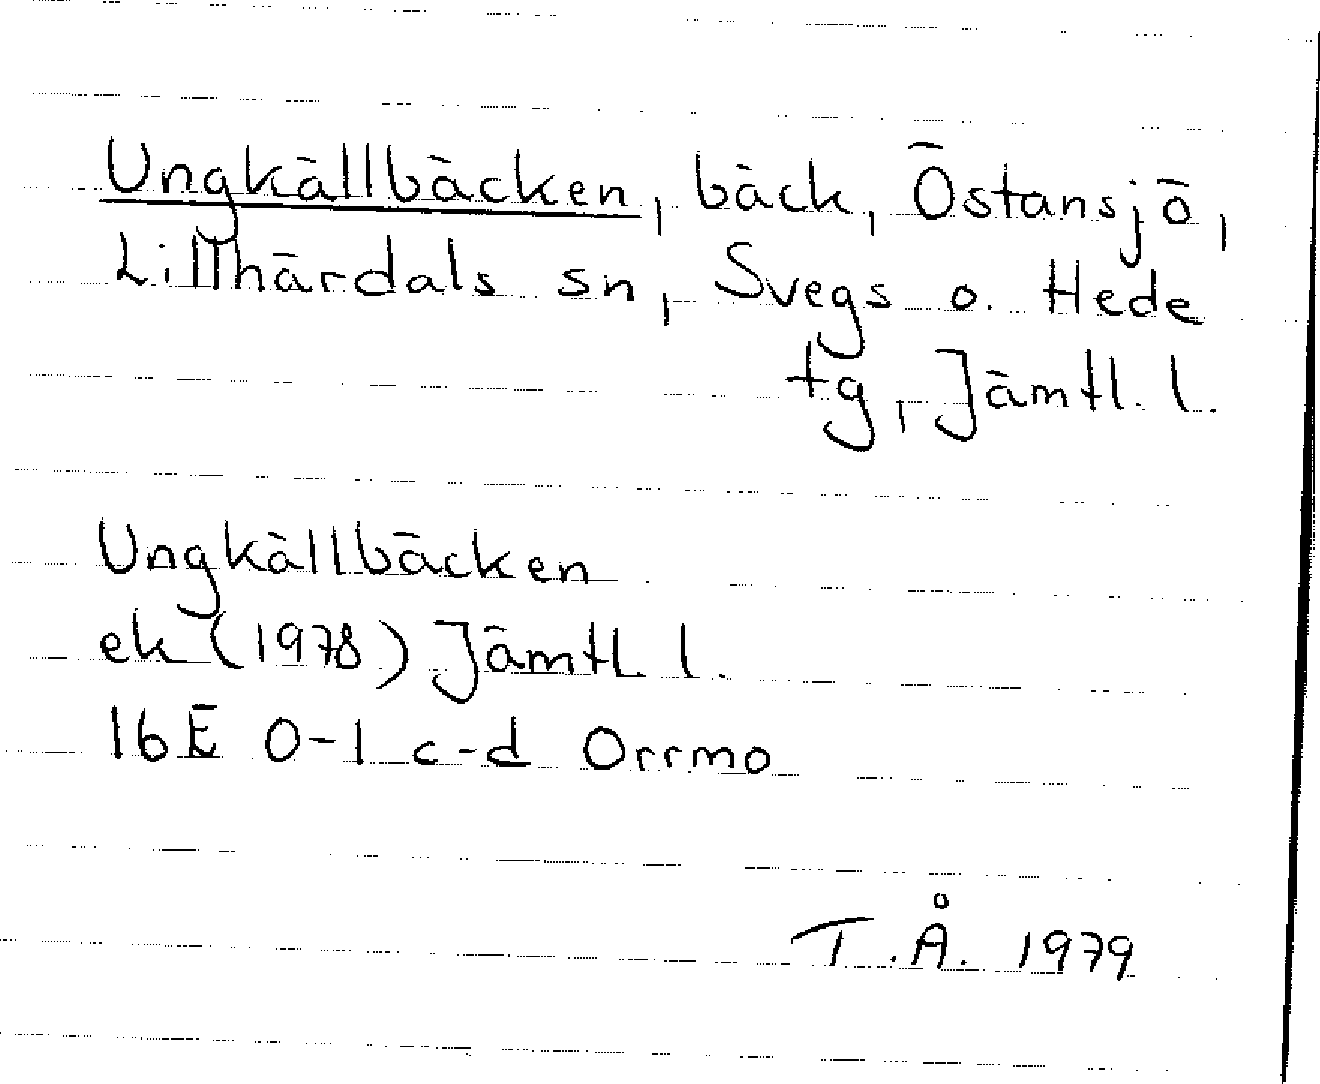 Ungkällbäcken, bäck, Östansjö,
Lillhärdals sn, Svegs o. Hede
tg, Jämtl. l.
Ungkällbäcken
ek (1978) Jämtl. l.
16E 0-1 c-d Orrmo
T.Å. 1979